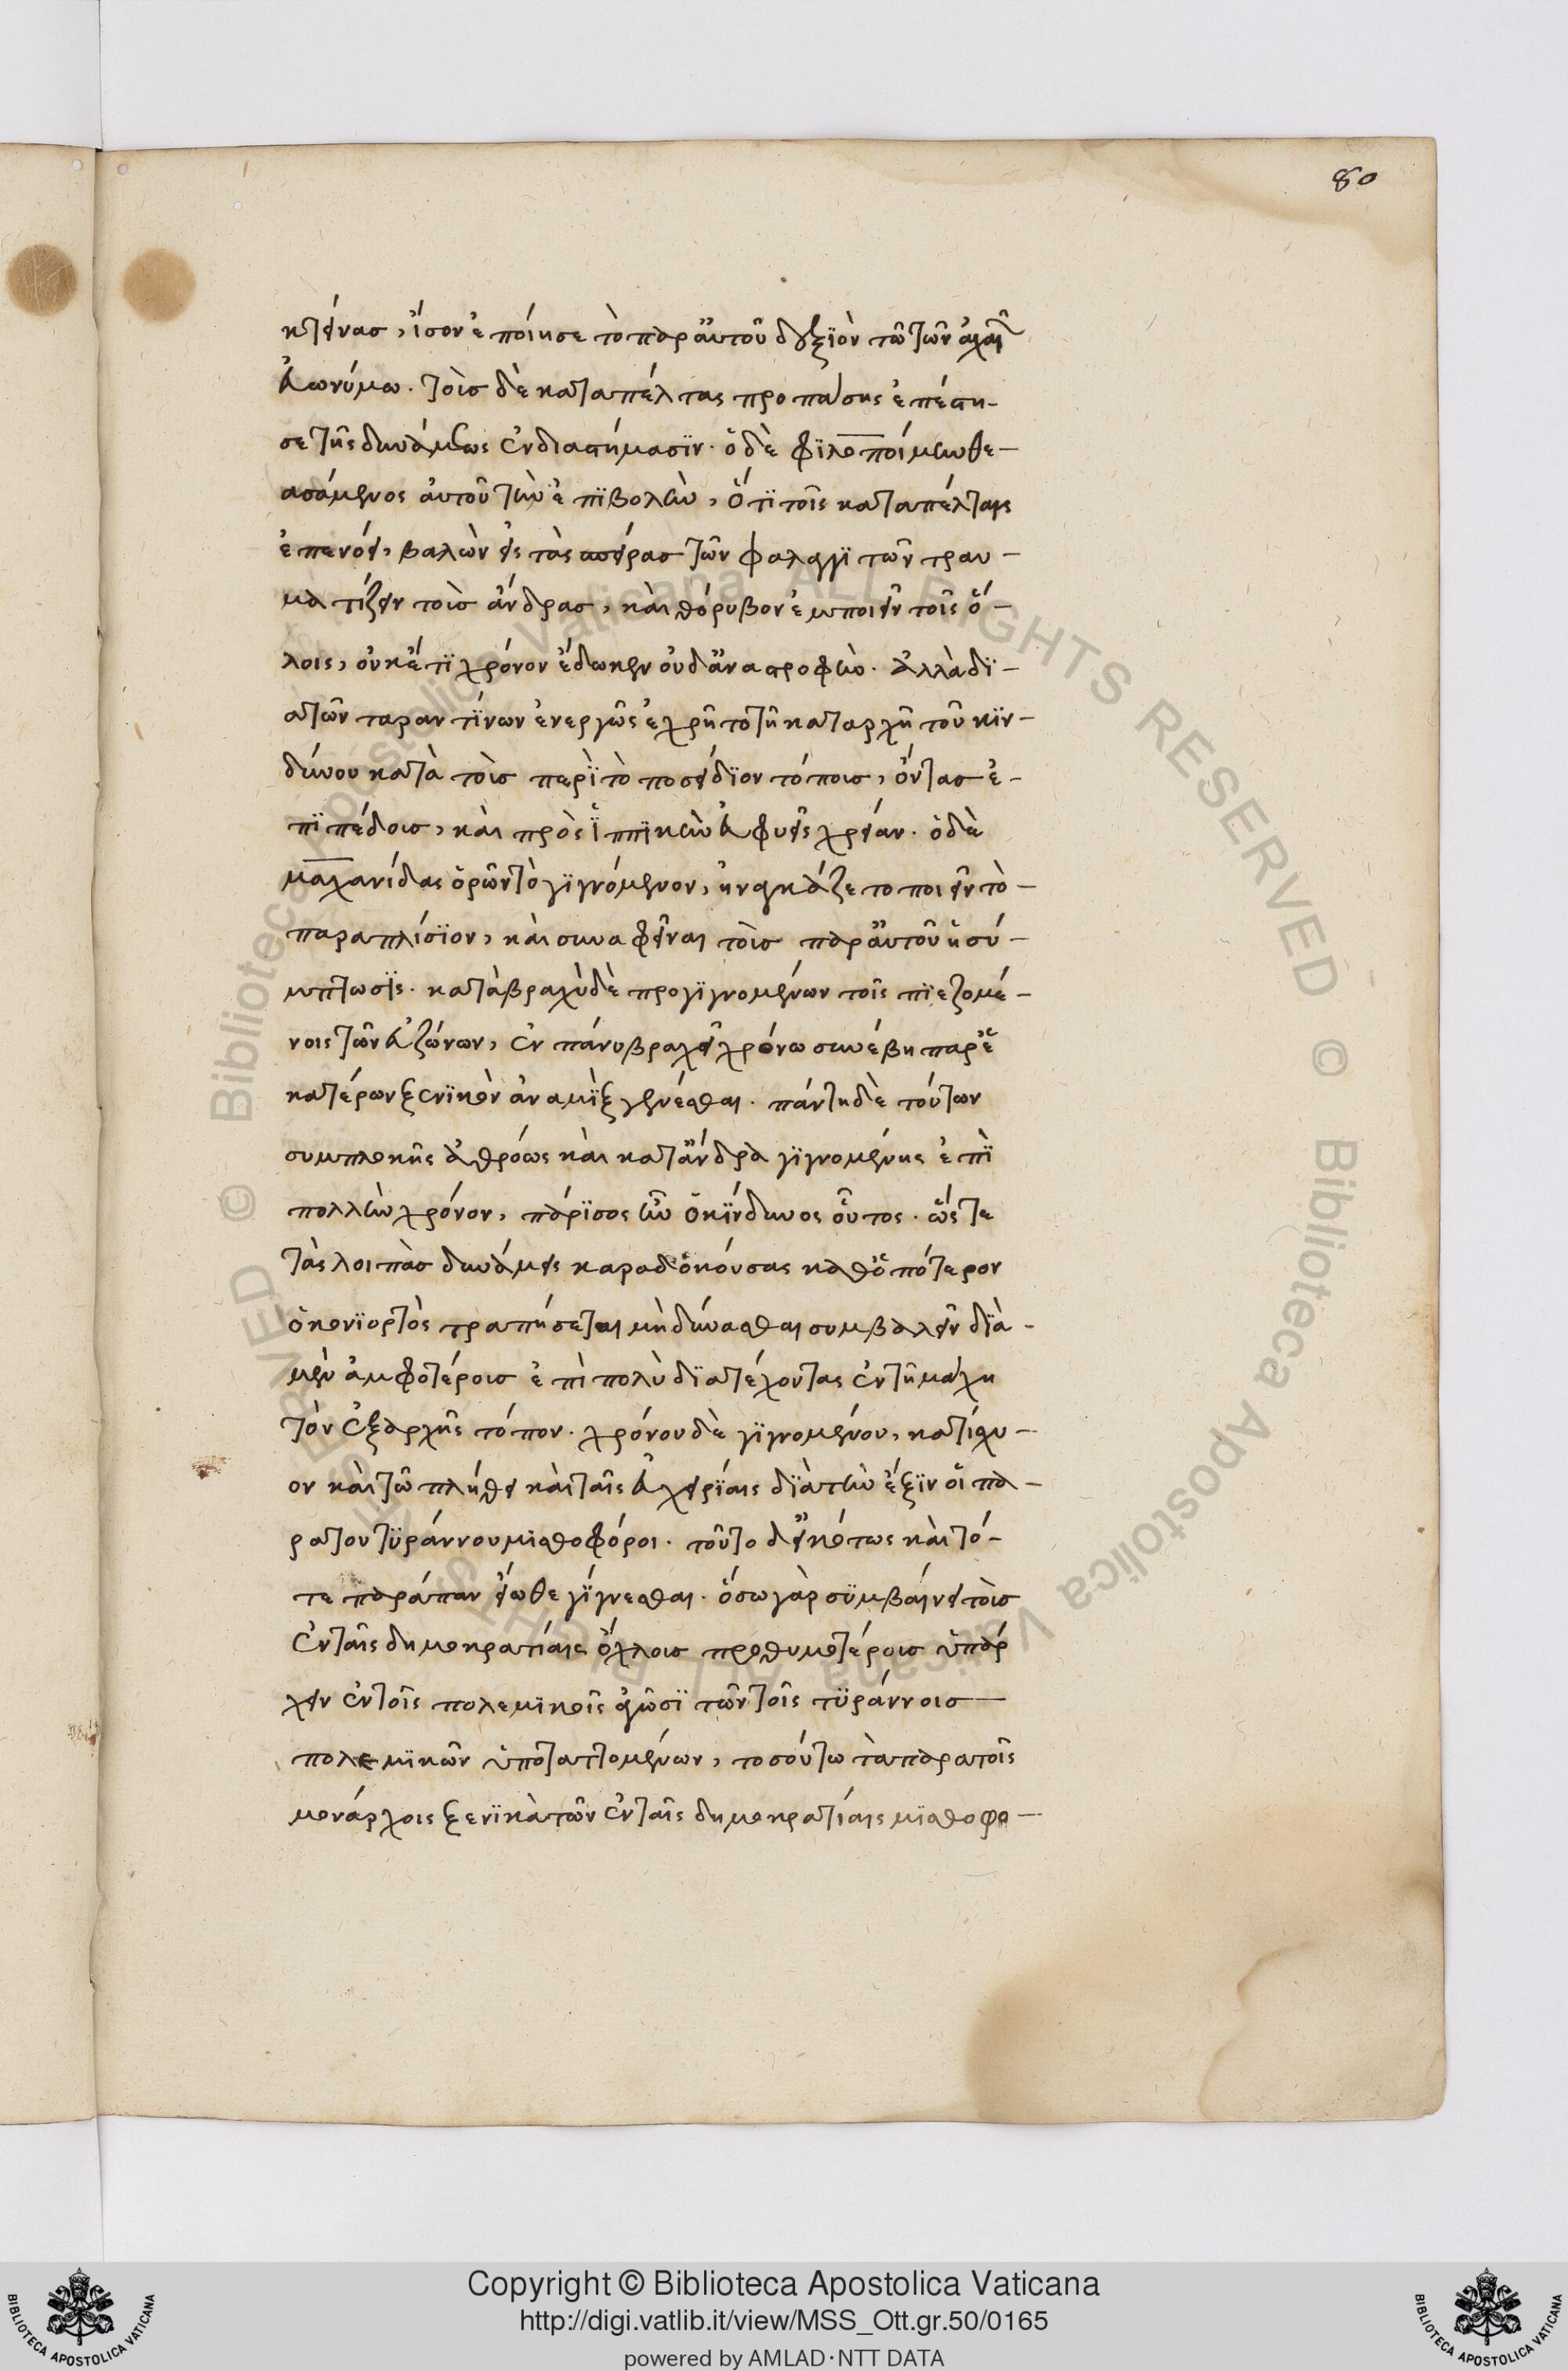 80
κτείνας, ἴσον ἐποίησε τὸ παρ' αὐτοῦ δεξιὸν τῶ τῶν ἀχαιῶν
εὐωνύμω. τοὺς δὲ καταπέλτας πρὸ πάσης ἐπέστη-
σε τῆς δυνάμεως ἐν διαστήμασϊν. ὁ δὲ φϊλοποίμην θε-
ασάμενος αὐτοῦ τὴν ἐπϊβολὴν, ὅτϊ τοῖς καταπέλταις
ἐπενόει, βαλὼν εἰς τὰς σπείρας τῶν φαλαγγϊτῶν τραυ-
ματίζειν τοὺς ἄνδρας, καὶ θόρυβον ἐμποιεῖν τοῖς ὅ-
λοις, οὐκέτϊ χρόνον ἔδωκεν οὐδ' ἀναστροφὴν. ἀλλὰ δϊ-
ὰ τῶν ταραντίνων ἐνεργῶς ἐχρῆτο τῆ καταρχῆ τοῦ κϊν-
δύνου κατὰ τοὺς περϊ τὸ ποσείδϊον τόπους, ὄντας ἐ-
πϊπέδους, καὶ πρὸς ϊππϊκὴν εὐφυεῖς χρείαν. ὁ δὲ
μαχανίδας ὁρῶν τὸ γϊγνόμενον, ἠναγκάζετο ποιεῖν τὸ
παραπλήσϊον, καὶ συναφεῖναι τοὺς παρ' αὐτοῦ ἡ σύ-
μπτωσϊς. κατὰ βραχὺ δὲ προγϊγνομένων τοῖς πϊεζομέ-
νοις τῶν εὐζώνων, ἐν πάνυ βραχεῖ χρόνω συνέβη παρ' ἑ
κατέρων ξενϊκὸν ἀναμὶξ γενέσθαι. πάντη δὲ τούτων
συμπλοκῆς ἀθρόως καὶ κατ' ἄνδρα γϊγνομένης ἐπϊ
πολλὴν χρόνον, πάρϊσος ἦν ὁ κίνδυνος οὗτος. ὥστε
τὰς λοιπὰς δυνάμεις καραδοκούσας καθ' ὁπότερον
ὁ κονϊορτὸς τραπήσεται μὴ δύνασθαι συμβαλεῖν δϊὰ
μὲν ἀμφοτέρους ἐπὶ πολὺ δϊατέχοντας ἐν τῆ μάχη
τὸν ἐξαρχῆς τόπον. χρόνου δὲ γϊγνομένου, κατίσχυ-
ον καὶ τῶ πλήθει καὶ ταῖς εὐχειρίαις δϊὰ τὴν ἕξϊν οἱ πα-
ρὰ του τϋράννου μισθοφόροι. τοῦτο δ' εἰκότως καὶ τό-
τε παράπαν εἴωθε γίγνεσθαι. ὅσω γὰρ συμβαίνει τοὺς
ἐν ταῖς δημοκρατίαις ὄχλους προθυμοτέρους ὑπάρ
χειν ἐν τοῖς πολεμϊκοῖς ἀγῶσϊ τῶν τοῖς τϋράννοις
πολεμϊκῶν ὑποταττομένων, τοσούτω τὰ παρὰ τοῖς
μονάρχοις ξενϊκὰ τῶν ἐν ταῖς δημοκρατίαις μϊσθοφο-
© Biblioteca Apostolica Vaticana ALL RIGHTS RESERVED
Copyright © Biblioteca Apostolica Vaticana
http://digi.vatlib.it/view/MSS_Ott.gr.50/0165
powered by AMLAD·NTT DATA
BIBLIOTECA APOSTOLICA VATICANA
BIBLIOTECA APOSTOLICA VATICANA